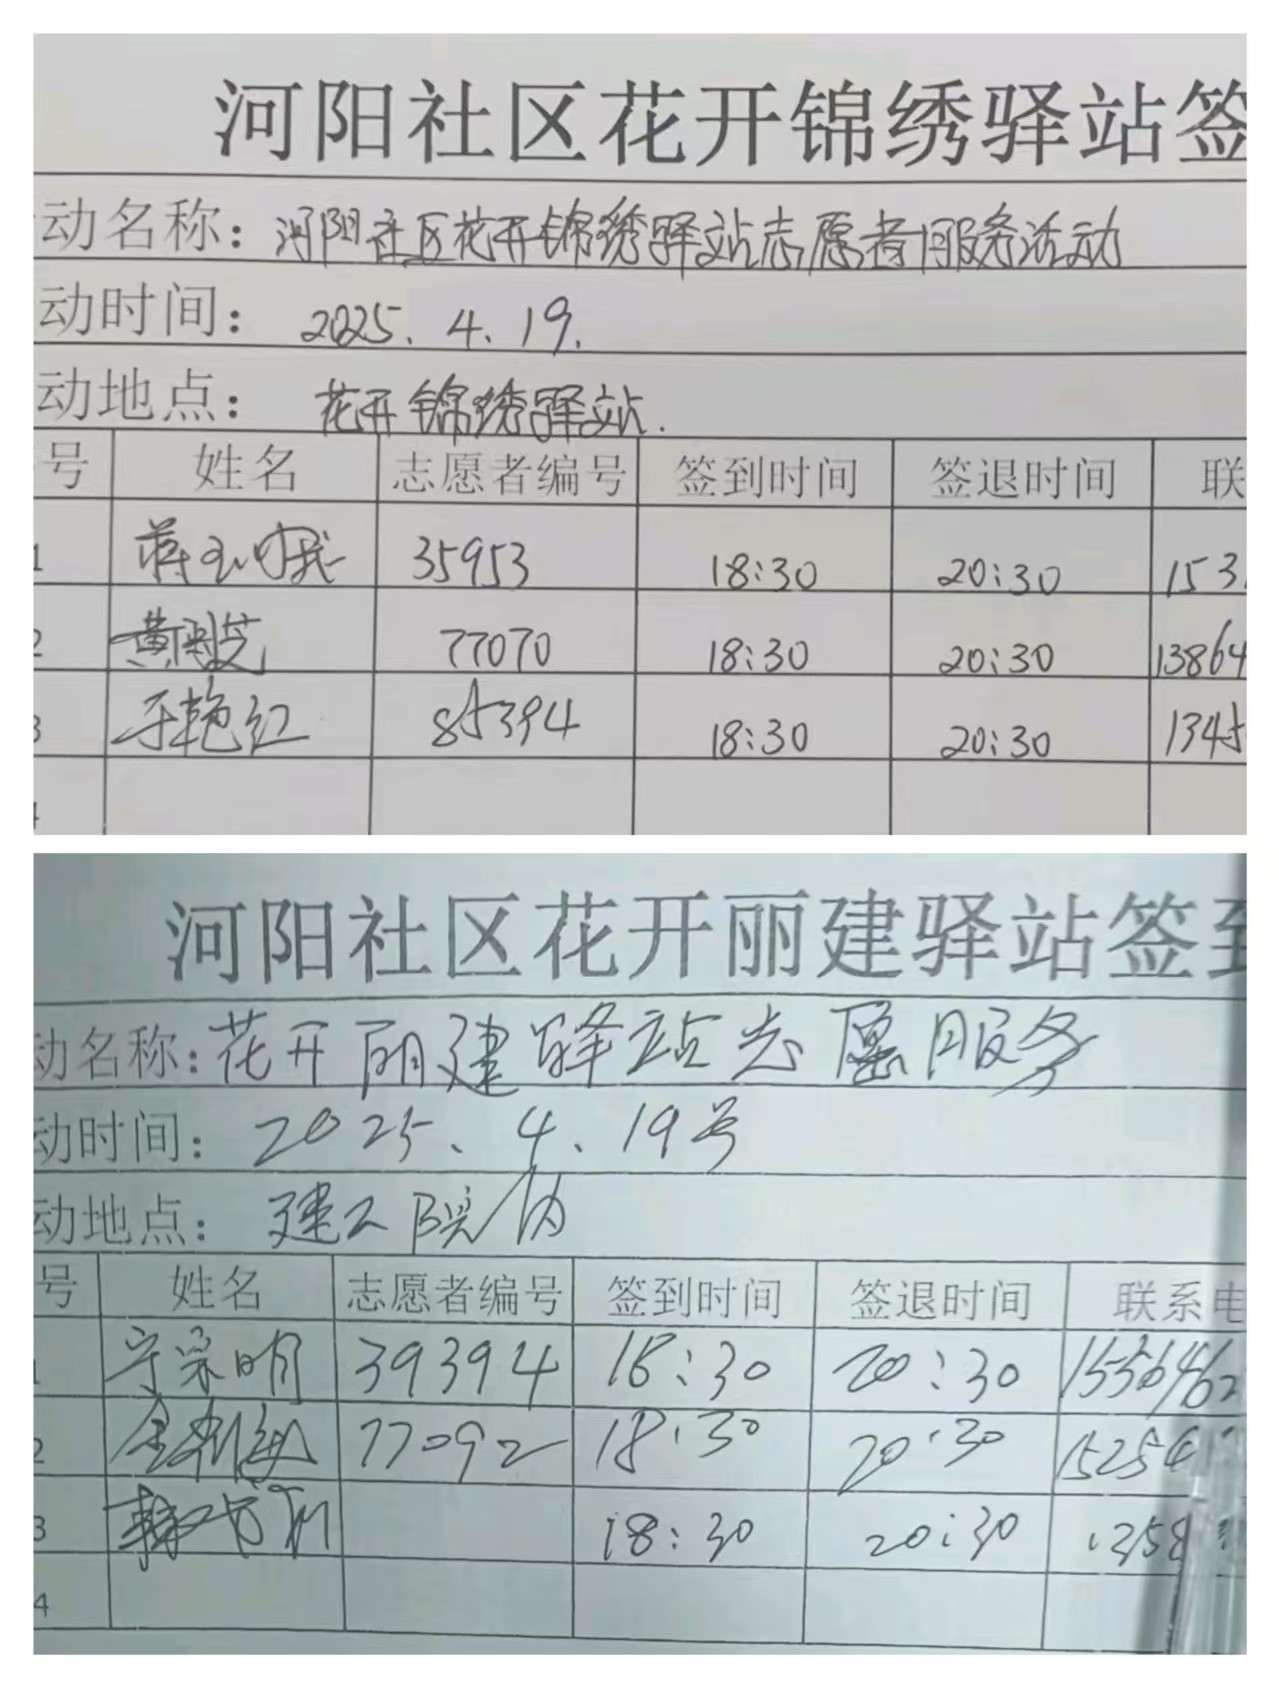 河阳社区花开锦绣驿站签
动名称：河阳社区花开锦绣驿站志愿者服务活动
动时间：2025.4.19.
动地点：花开锦绣驿站.
号 姓名 志愿者编号 签到时间 签退时间 联
1 35953 18:30 20:30 153
2 黄闺芝 77070 18:30 20:30 13864
3 于艳红 85394 18:30 20:30 1345
4
河阳社区花开丽建驿站签到
动名称：花开丽建驿站志愿服务
动时间：2025、4、19号
动地点：建工院内
号 姓名 志愿者编号 签到时间 签退时间 联系电
1 39394 18:30 20:30
2 77092 18:30 20:30 15254
3 18:30 20:30 1358
4